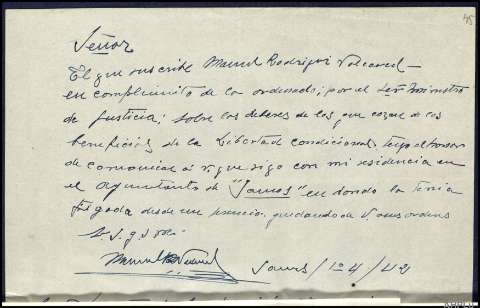 45
Señor
El que suscribe Manuel Rodrigui Valcarcel
en complimiento de lo ordenado; por el Señor Ministro
de Justicia; sobre los deberes de los que gozan de los
beneficios de la Libertad condicional, tengo el honor
de comunicar a V. que sigo con mi residencia en
el Ayuntamiento de "Samos" en donde la tenia
fijada desde un principio, quedando a V. sus ordenes
Manuel R Valcarcel
Samos / 1º 4 / 42